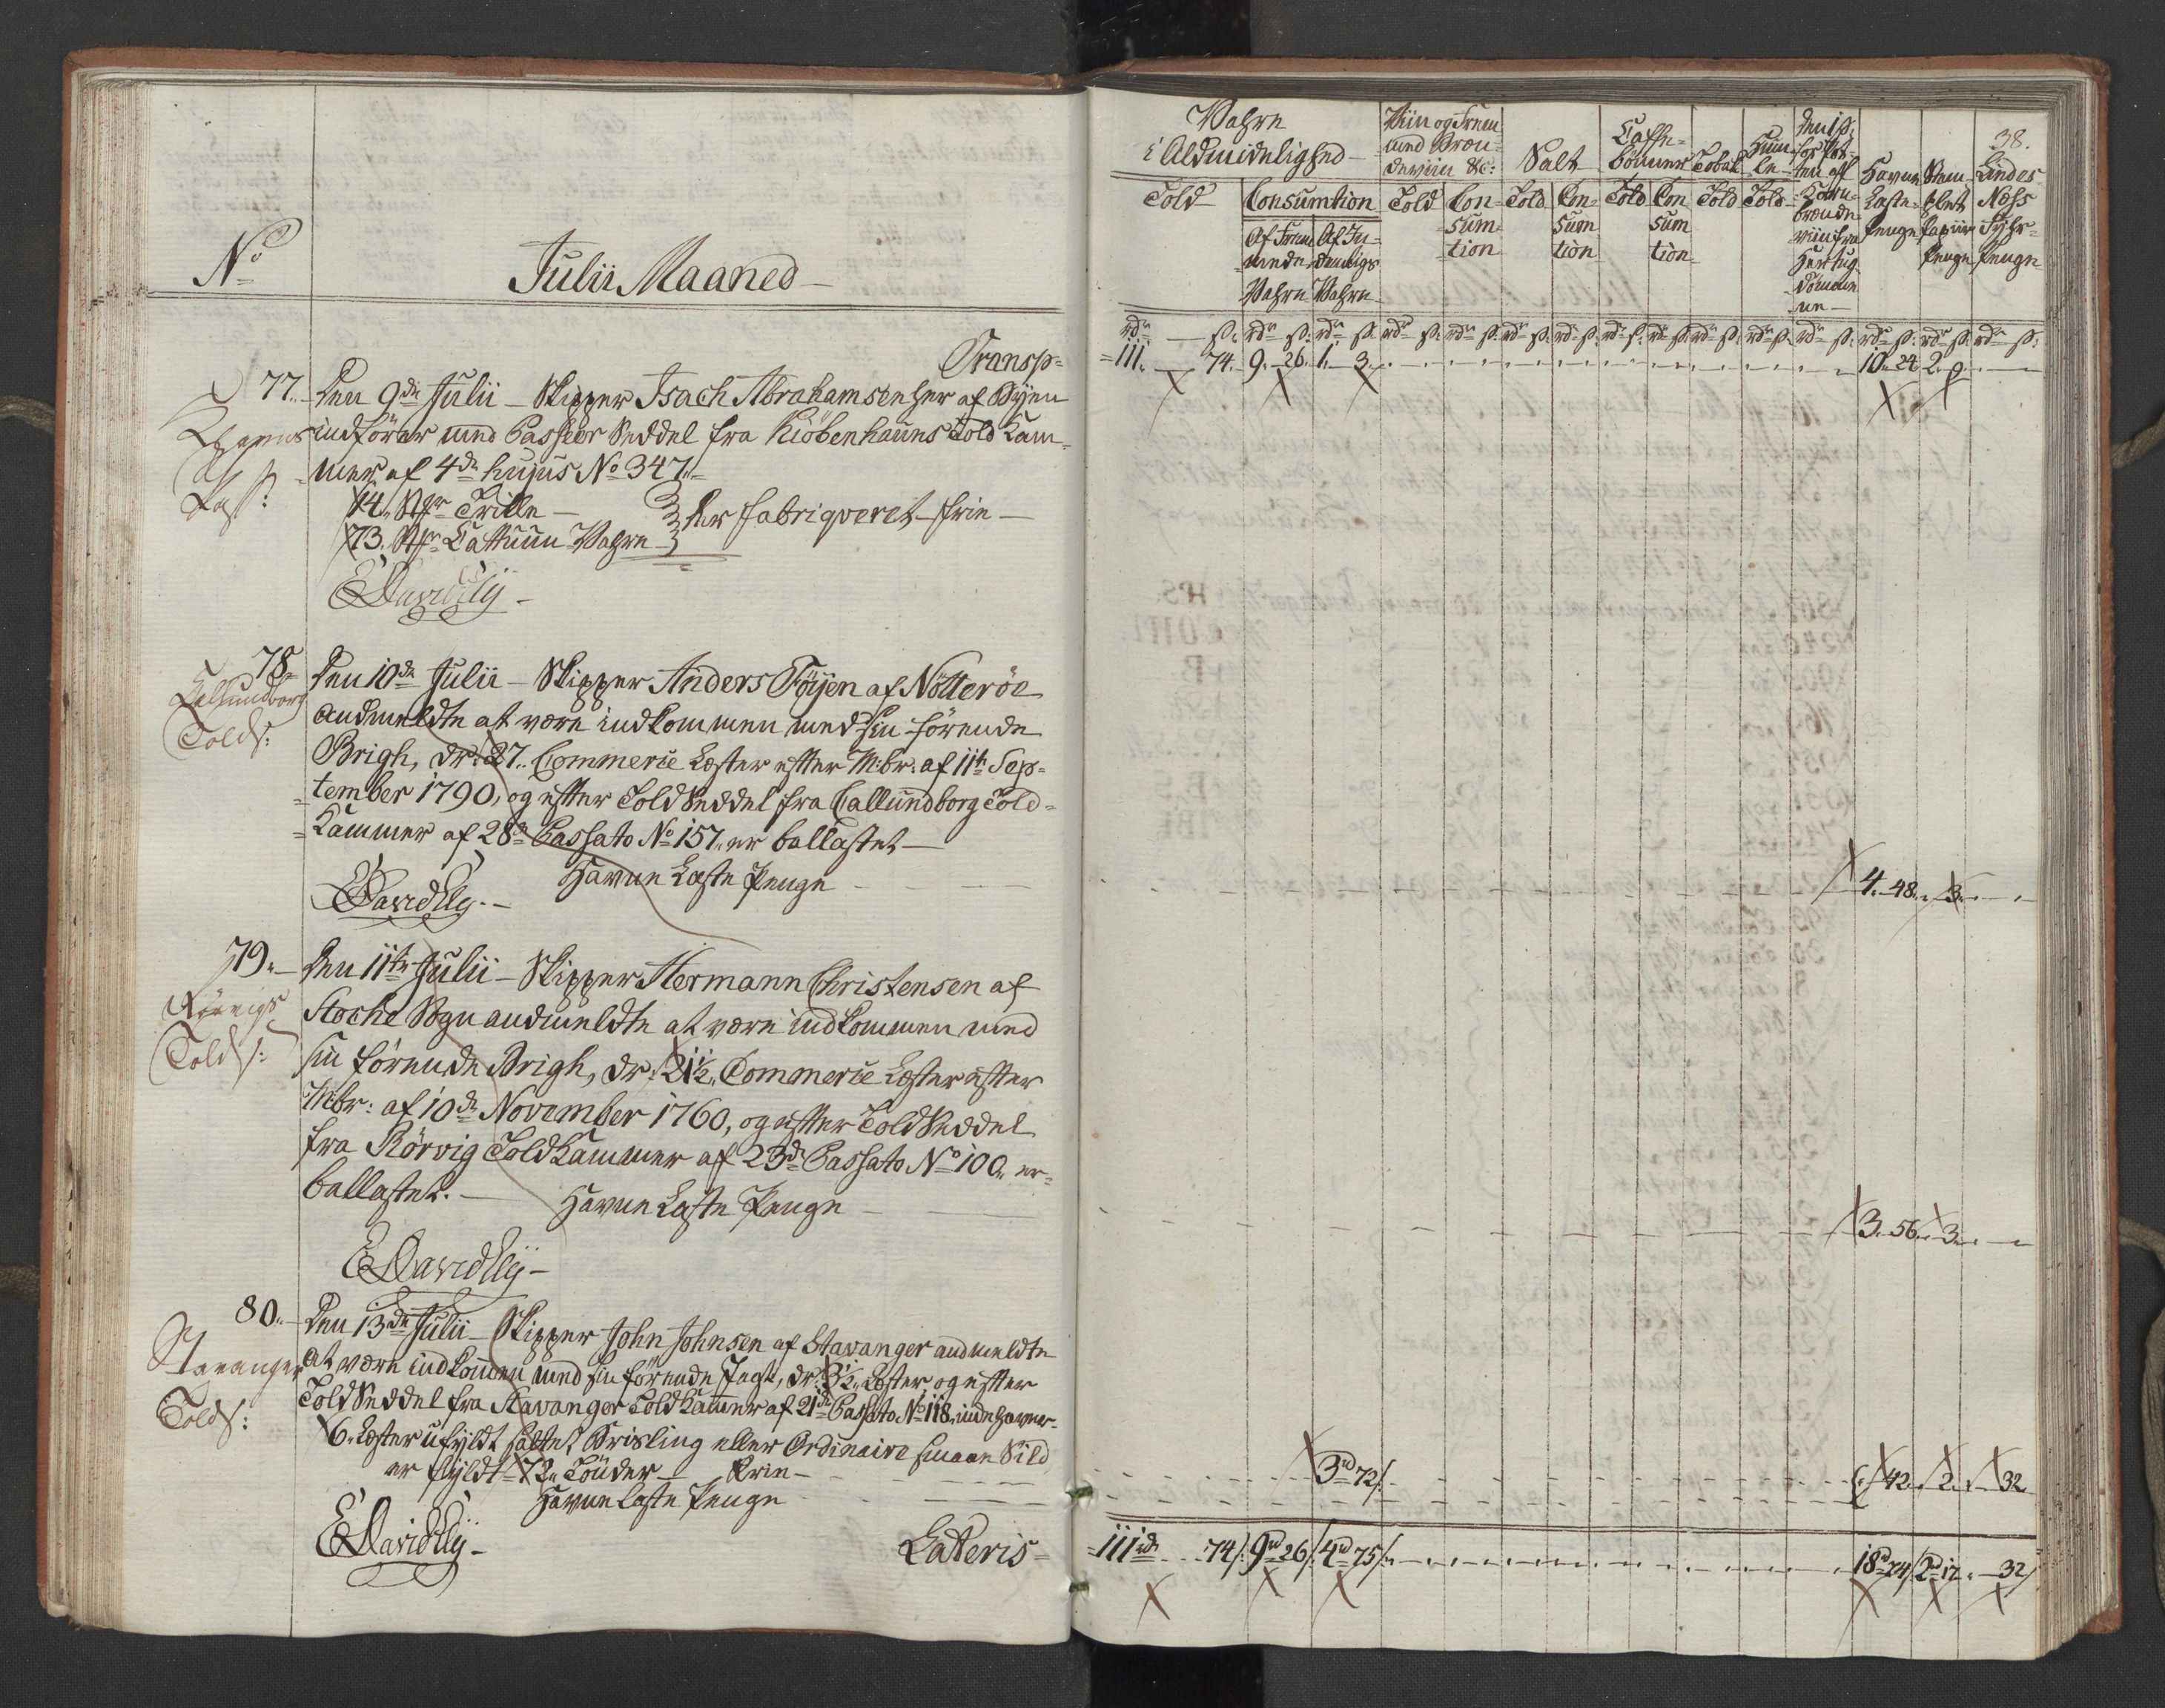 No
Julii Maaned
Transp=
77.
Den 9de Julii – Skipper Isach Abrahamsen her af Byen
indförer med Passeer Seddel fra Kiöbenhauns Told Kam=
=mer af 4de hujus No 347.
14. Trille
73. Cattuun Vahre
her fabriqveret – frie
EDavidsly
78.
Callundborg
Tolds:
Den 10de Julii – Skipper Anders Föyen af Nötteröe
andmeldte at være indkommen med sin förende
Brigh, dr: 27. Commerce Læster efter Mbr: af 11te Sep=
=tember 1790, og efter Told Seddel fra Callundborg Told=
=Kammer af 28de Passato No 157. er ballastet
Havne Læste Penge
EDavidsly.
79.
Rörvigs
Tolds:
Den 11te Julii – Skipper Hermann Christensen af
Stocke Sogn andmeldte at være indkommen med
sin förende Brigh, dr: 21½. Commerce Læster efter
Mbr: af 10de November 1760, og efter Told Seddel
fra Rörvig Told Kammer af 23de Passato No 100. er
ballastet.
Havne Læste Penge
EDavidsly
80.
Stavanger
Tolds:
Den 13de Julii – Skipper John Johnsen af Stavanger andmeldte
at være indkommen med sin förende Jagt, dr: 3½. Læster, og efter
Told Seddel fra Stavanger Told Kammer af 21de Passato No 118. indehaver
6. Læster ufyldt saltet Brisling eller Ordinaire smaae Sild
er fyldt 72. Tönder
Havne Læste Penge
EDavidsly
Lateris
38.
Vahre
i Aldmindelighed
Viin og Frem=
med Bræn=
deviin &c:
Salt
Caffe=
bönner
Tobak
Hum=
le
den 1 s:
for Pot=
ten af
Korn=
brænde=
viin fra
Hertug=
dömme=
ne
Havne
Læste=
Penge
Stem=
plet
Papiir
Penge
Lindes
Næss
Fyhr=
Penge
Told
Consumtion
Told
Con=
sum=
tion
Told
Con=
sum
tion
Told
Con
sum
tion
Told
Told
Af Frem=
mede
Vahre
Af In=
denligs
Vahre
rdr s: rdr s: rdr s: rdr s: rdr s: rdr s: rdr s: rdr s: rdr s: rdr s: rdr s: rdr s: rdr s: rdr s: rdr s:
111. 74. 9. 26. 1. 3. 10. 24 2. 9.
4. 48. 3.
3. 56. 3.
3rd 72s. 42. 2. 32
111rd 74s. 9rd 26s. 4rd 75s. 18rd 74s 2rd 17. 32s